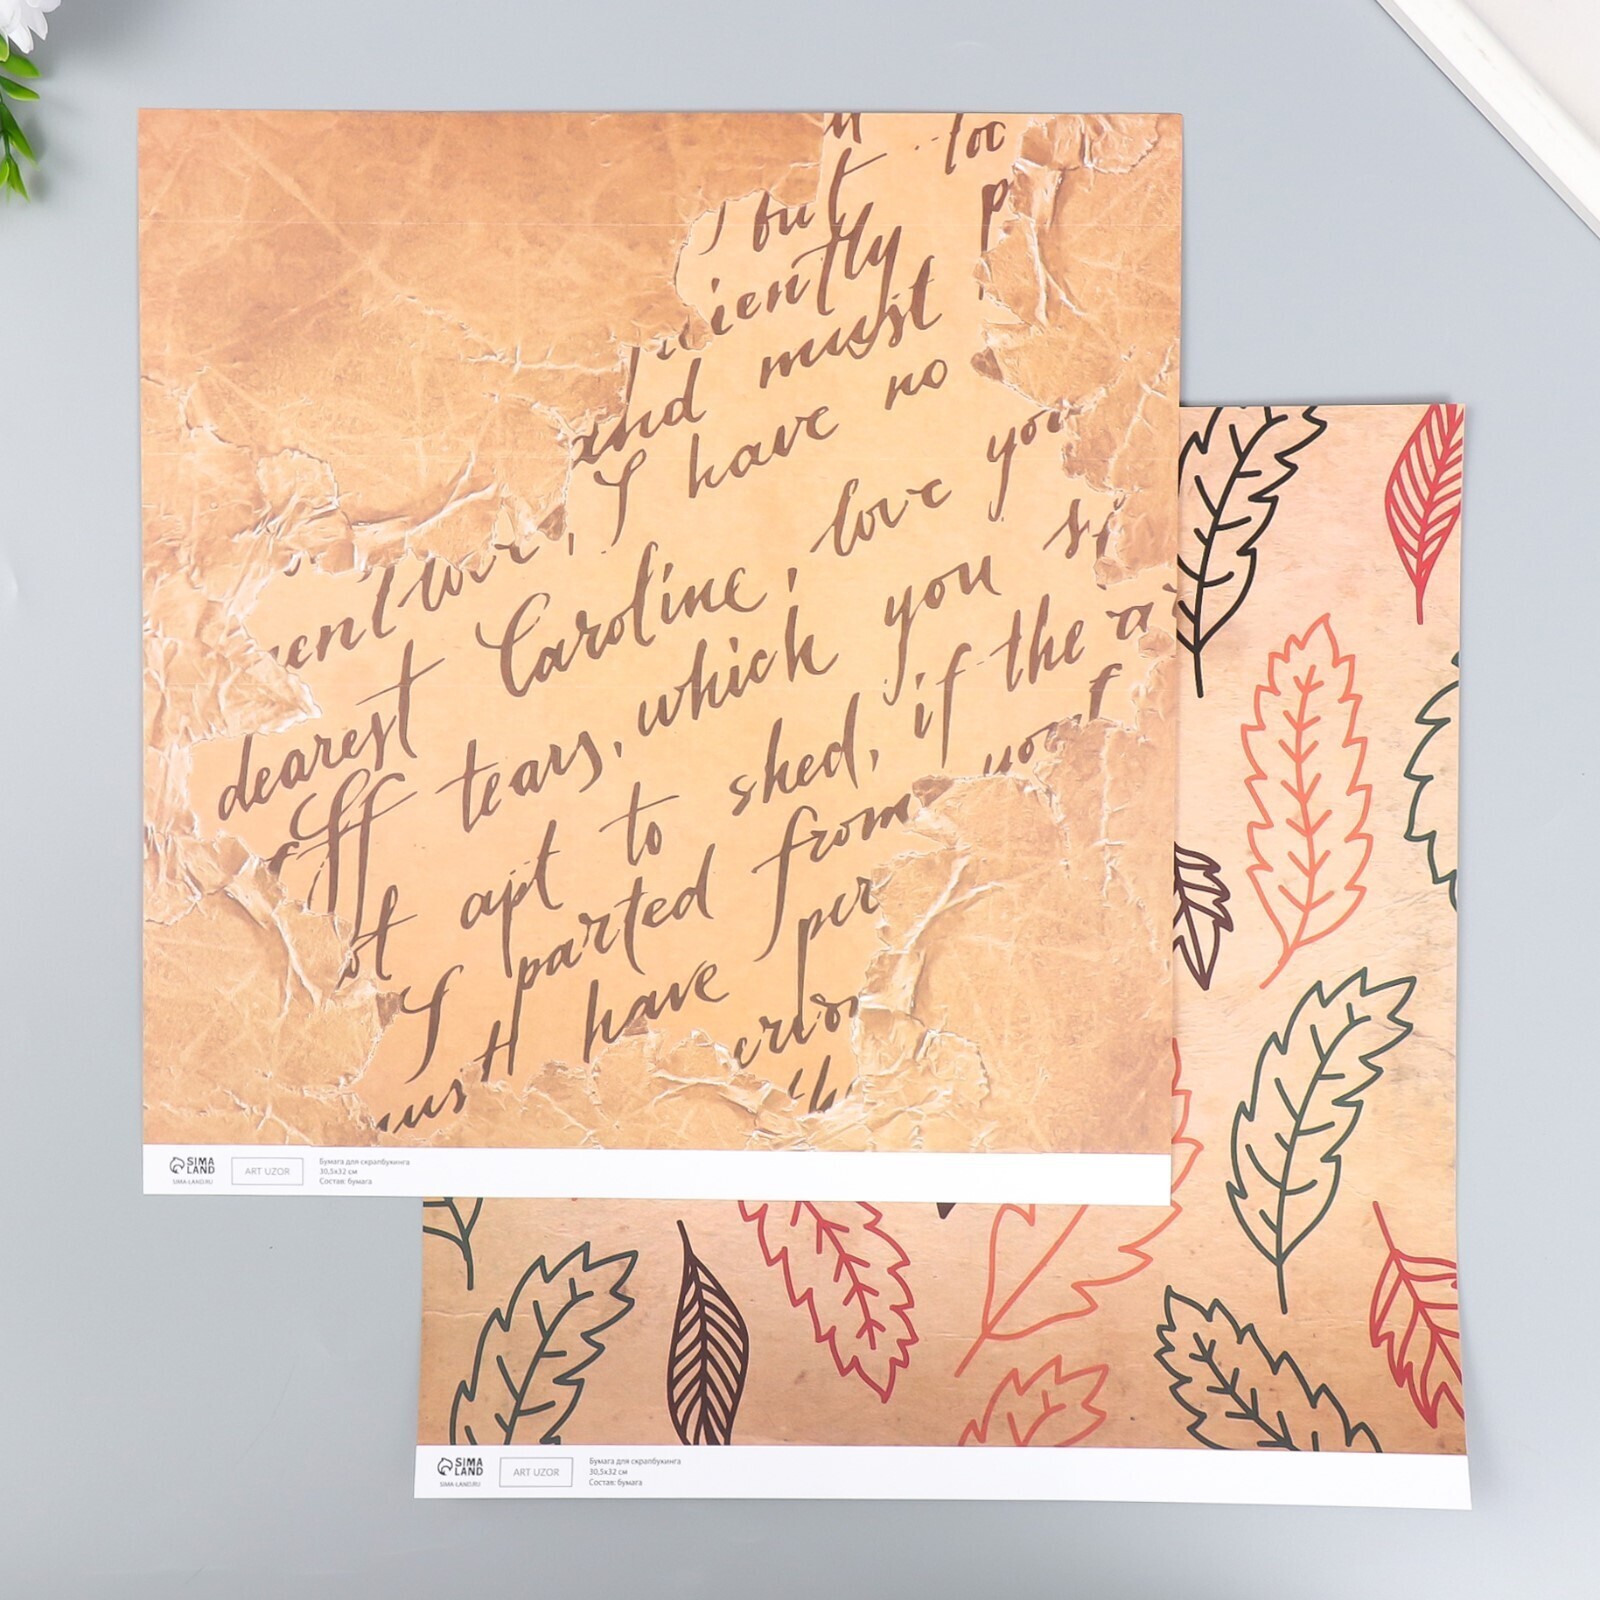 but
and must
I have no
love you
dearest Caroline,
off tears, which you
apt to shed, if the
I parted from
must have per
SIMA
LAND
SIMA-LAND.RU
ART UZOR
Бумага для скрапбукинга
30,5x32 см
Состав: бумага
SIMA
LAND
SIMA-LAND.RU
ART UZOR
Бумага для скрапбукинга
30,5x32 см
Состав: бумага